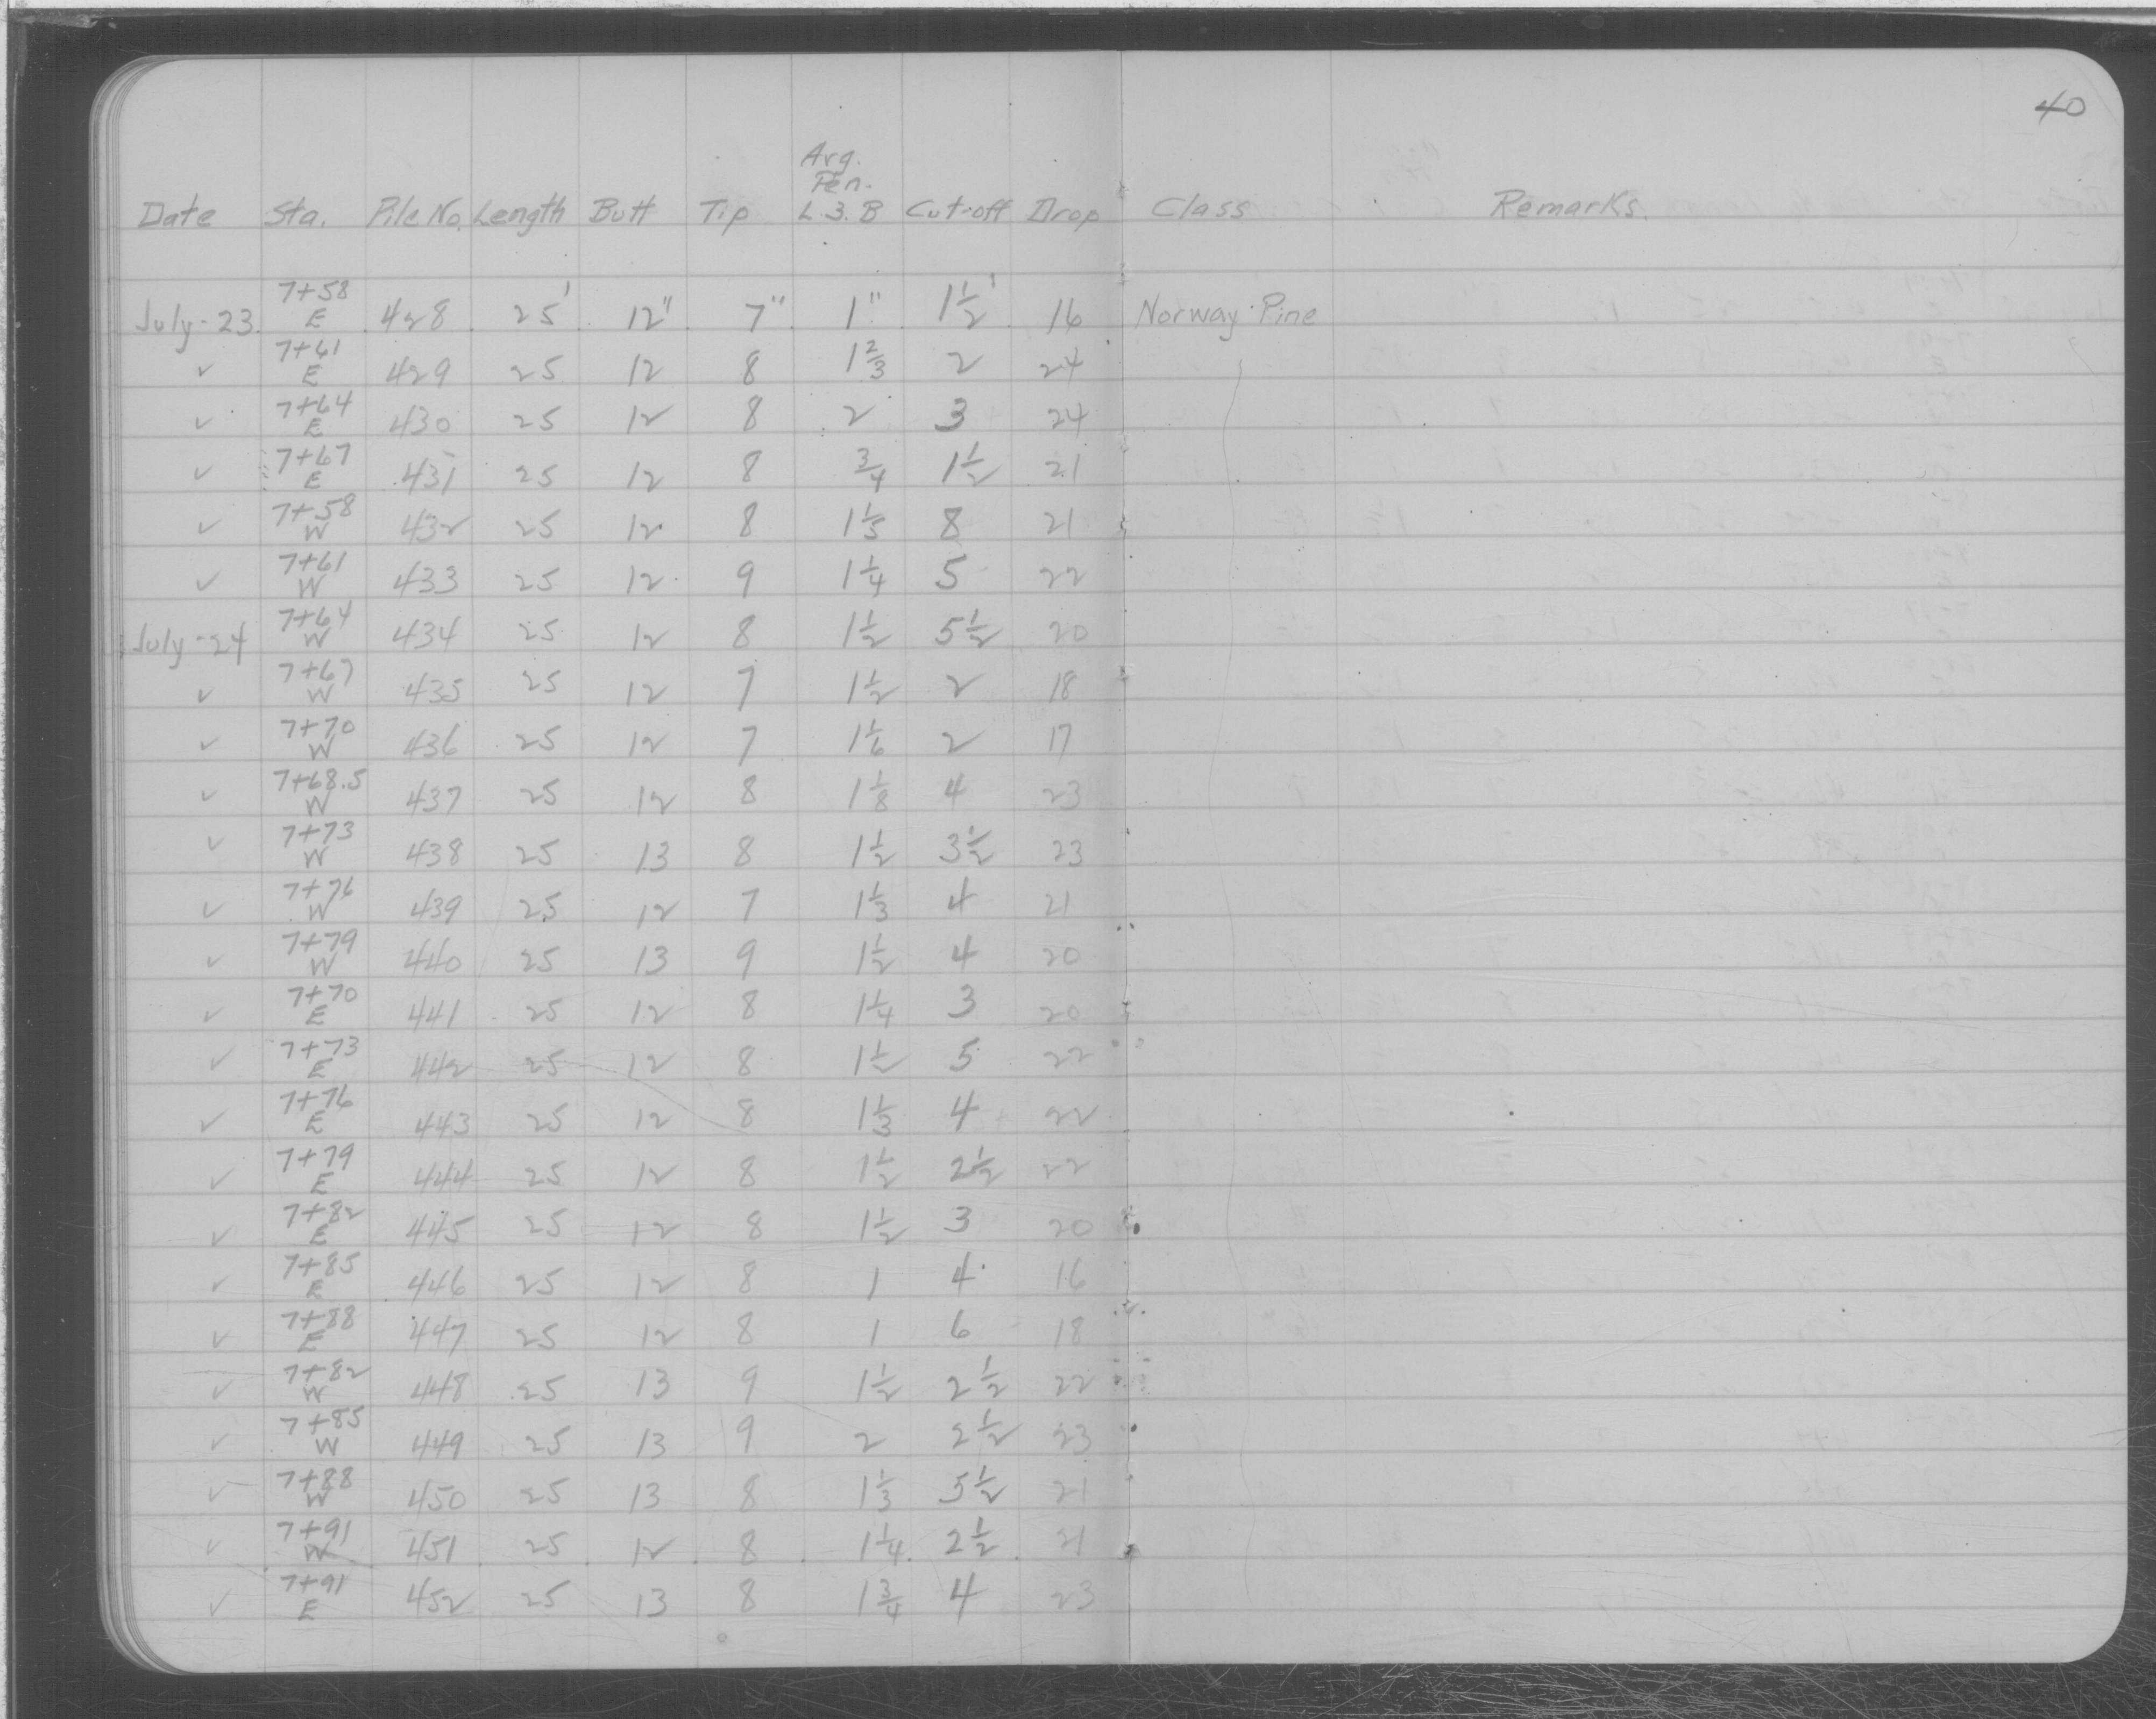 40
Avg.
Pen.
Date Sta. Pile No. Length Butt Tip L.3.B Cut-off Drop Class Remarks.
July-23. 7+58 E 428 25' 12" 7" 1" 1½' 16 Norway Pine
✓ 7+61 E 429 25 12 8 1⅔ 2 24
✓ 7+64 E 430 25 12 8 2 3 24
✓ 7+67 E 431 25 12 8 ¾ 1½ 21
✓ 7+58 W 432 25 12 8 1⅓ 8 21
✓ 7+61 W 433 25 12 9 1¼ 5 22
July-24 7+64 W 434 25 12 8 1½ 5½ 20
✓ 7+67 W 435 25 12 7 1½ 2 18
✓ 7+70 W 436 25 12 7 1⅙ 2 17
✓ 7+68.5 W 437 25 12 8 1⅛ 4 23
✓ 7+73 W 438 25 13 8 1½ 3½ 23
✓ 7+76 W 439 25 12 7 1⅓ 4 21
✓ 7+79 W 440 25 13 9 1½ 4 20
✓ 7+70 E 441 25 12 8 1¼ 3 20
✓ 7+73 E 442 25 12 8 1½ 5 22
✓ 7+76 E 443 25 12 8 1⅓ 4 22
✓ 7+79 E 444 25 12 8 1½ 2½ 22
✓ 7+82 E 445 25 12 8 1½ 3 20
✓ 7+85 E 446 25 12 8 1 4 16
✓ 7+88 E 447 25 12 8 1 6 18
✓ 7+82 W 448 25 13 9 1½ 2½ 22
✓ 7+85 W 449 25 13 9 2 2½ 23
✓ 7+88 W 450 25 13 8 1⅓ 5½ 21
✓ 7+91 W 451 25 12 8 1¼ 2½ 21
✓ 7+91 E 452 25 13 8 1¾ 4 23